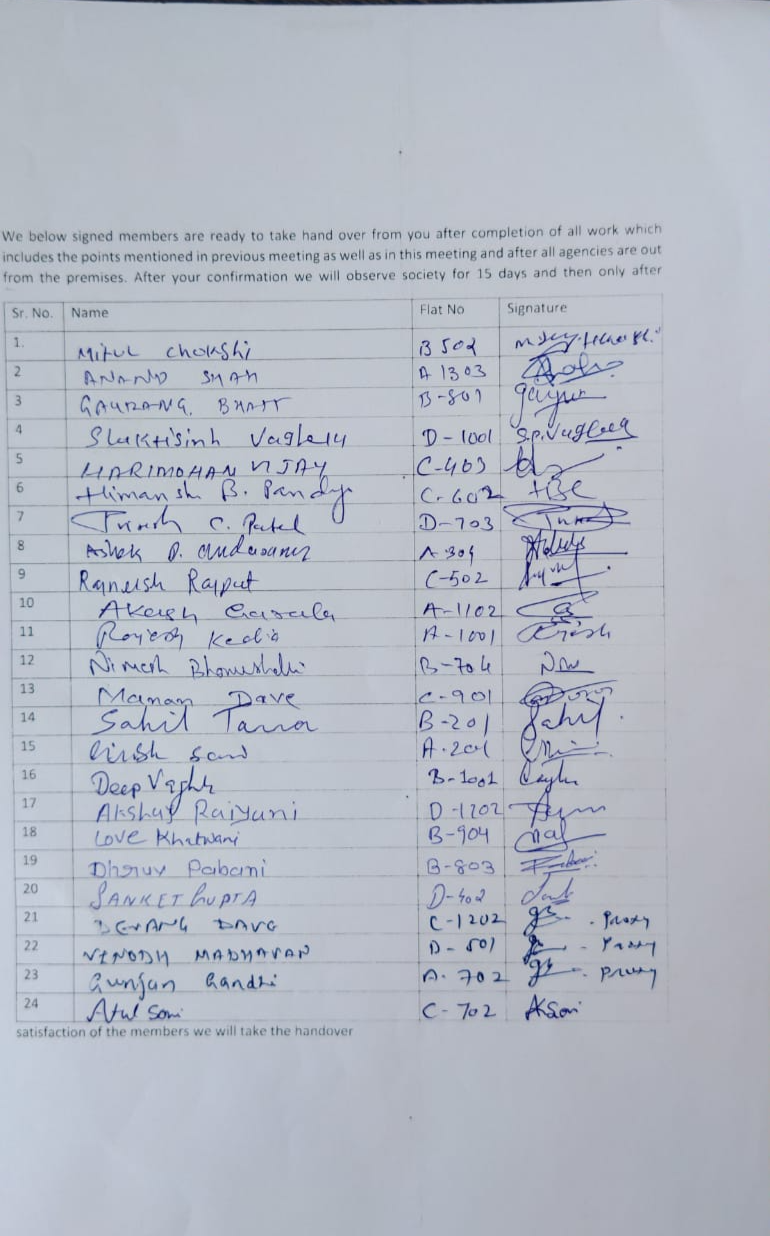 We below signed members are ready to take hand over from you after completion of all work which
includes the points mentioned in previous meeting as well as in this meeting and after all agencies are out
from the premises. After your confirmation we will observe society for 15 days and then only after
Sr. No. Name Flat No Signature
1. Mitul Chokshi B 502
2 ANAND SHAH A 1303
3 GAURANG. BHATT B-801
4 Shaktisinh Vaghela D-1001 S.P.Vaghela
5 HARIMOHAN VIJAY C-403
6 Himansh B. Pandya C-602
7 C. Patel D-703
8 Ashok D. A-304
9 Rajput C-502
10 Akash A-1102
11 Rajesh Kedia A-1001
12 Nimesh Bhanushali B-704
13 Manan Dave C-901
14 Sahil Tanna B-201 Sahil
15 Soni A-201
16 Deep Vaghela B-1001
17 Akshay Raiyani D-1202
18 Love Khatwani B-904
19 Dhruv Pabani B-803
20 SANKET GUPTA D-402
21 DEVANG DAVE C-1202 - Proxy
22 VINODH MADHAVAN D-501 - Proxy
23 Gunjan Gandhi A-702 - Proxy
24 Atul Soni C-702 ASoni
satisfaction of the members we will take the handover